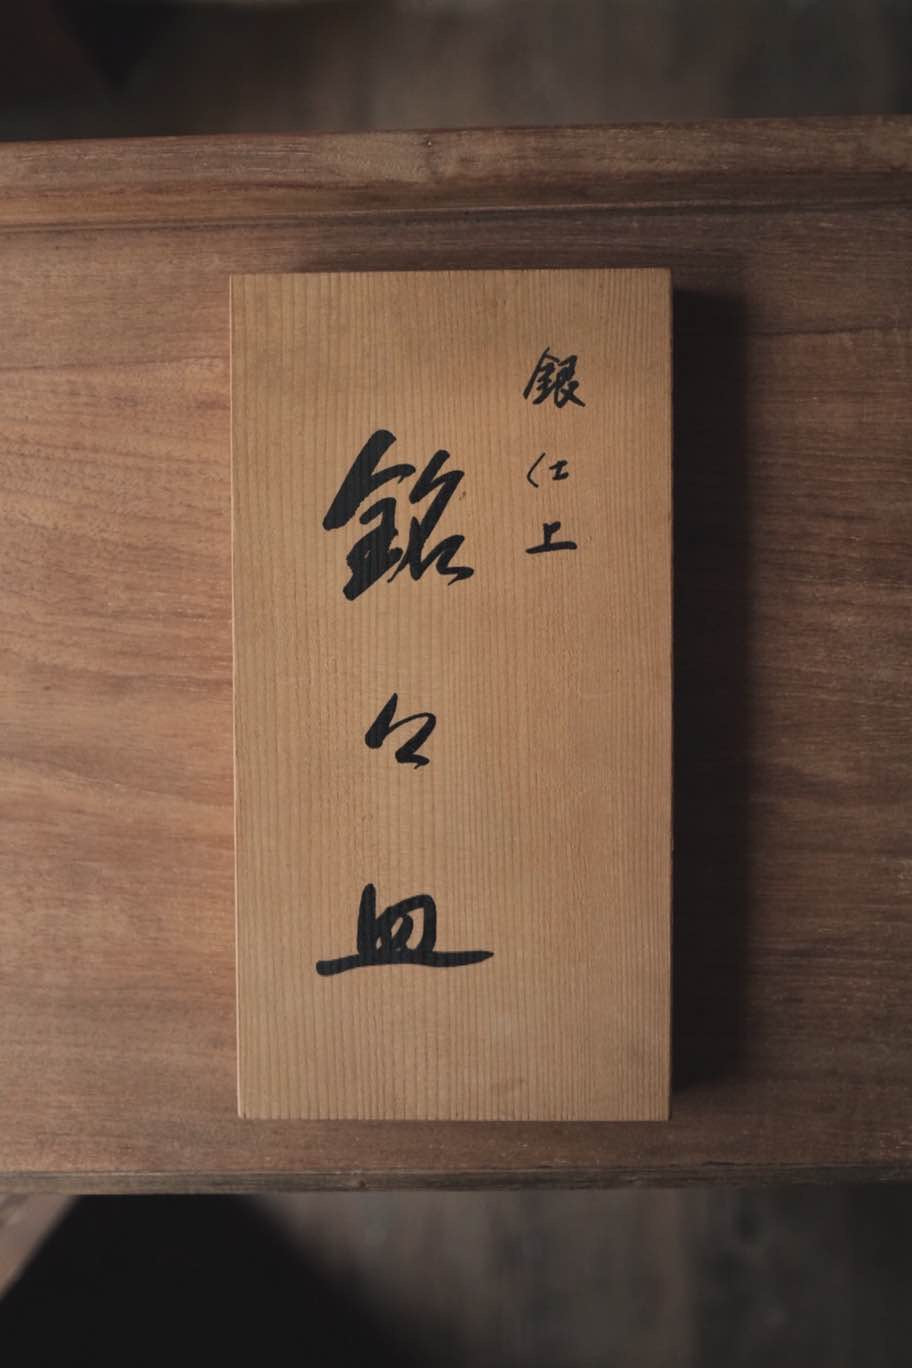 銀仕上
銘々皿